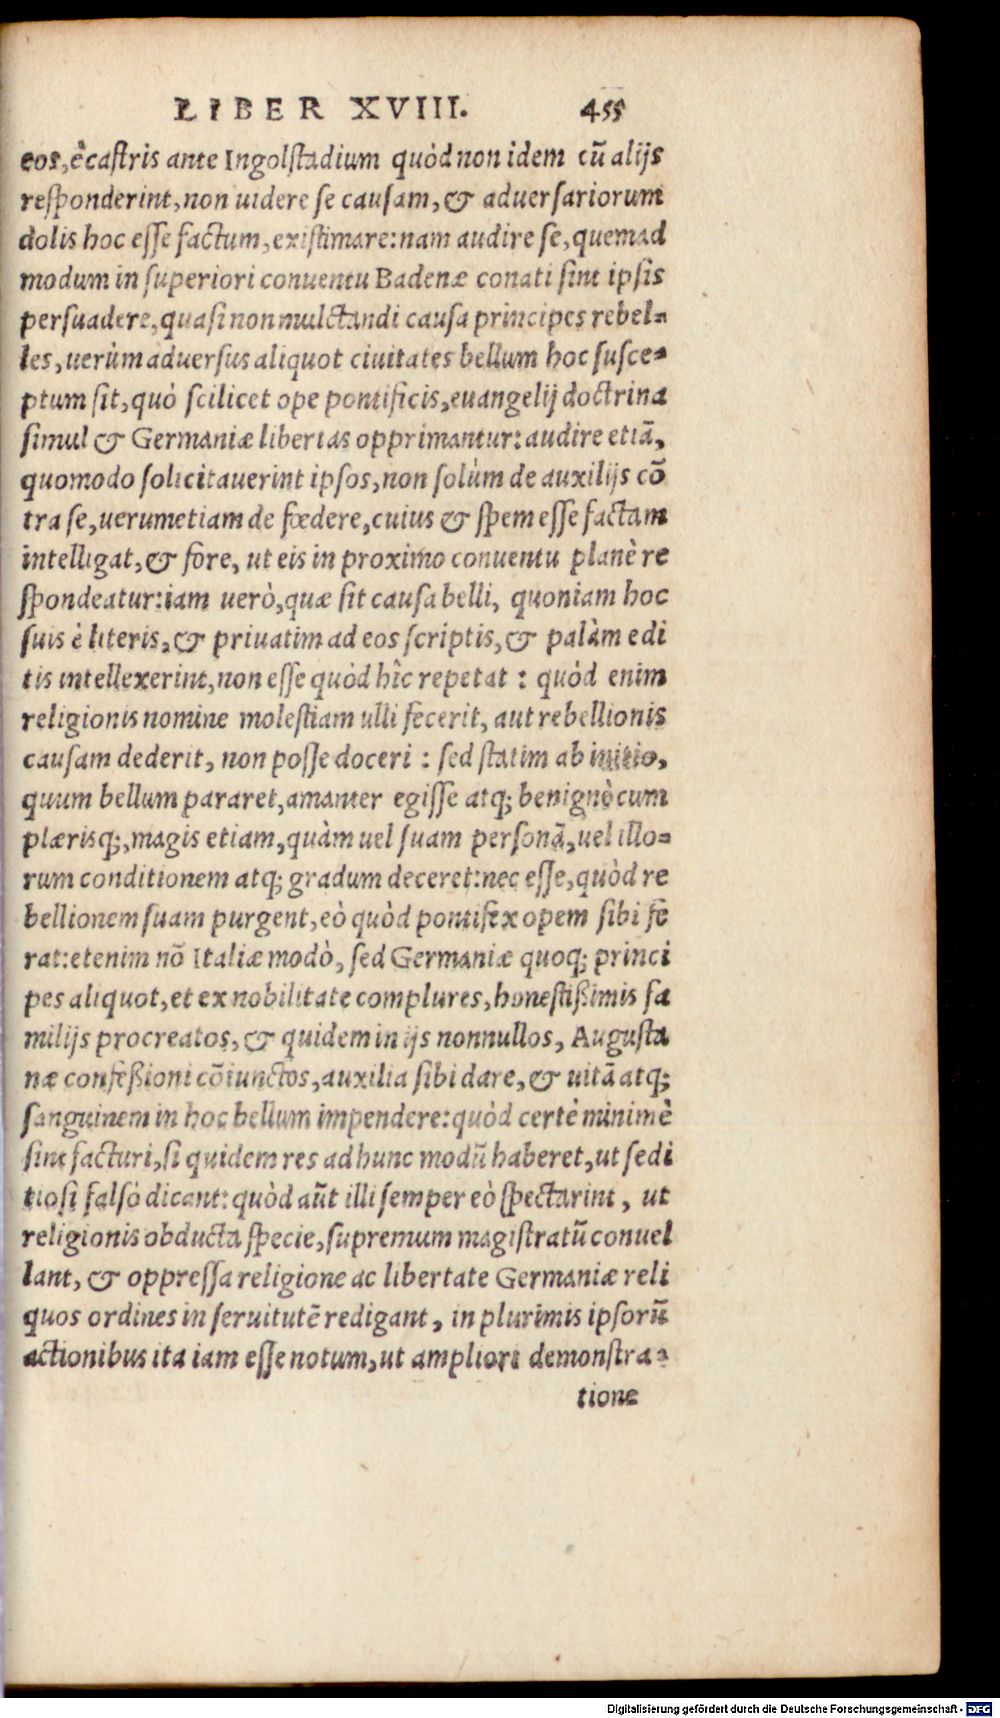 LIBER XVIII. 455
eos, è castris ante Ingolstadium quòd non idem cũ alijs
responderint, non uidere se causam, & aduersariorum
dolis hoc esse factum, existimare: nam audire se, quemad
modum in superiori conuentu Badenæ conati sint ipsis
persuadere, quasi non mulctandi causa principes rebel-
les, uerùm aduersus aliquot ciuitates bellum hoc susce-
ptum sit, quò scilicet ope pontificis, euangelij doctrina
simul & Germaniæ libertas opprimantur: audire etiã,
quomodo solicitauerint ipsos, non solùm de auxilijs cõ
tra se, uerumetiam de fœdere, cuius & spem esse factam
intelligat, & fore, ut eis in proximo conuentu planè re
spondeatur: iam uerò, quæ sit causa belli, quoniam hoc
suis è literis, & priuatim ad eos scriptis, & palàm edi
tis intellexerint, non esse quòd hîc repetat : quòd enim
religionis nomine molestiam ulli fecerit, aut rebellionis
causam dederit, non posse doceri : sed statim ab initio,
quum bellum pararet, amanter egisse atq; benignè cum
plærisq;, magis etiam, quàm uel suam personã, uel illo-
rum conditionem atq; gradum deceret: nec esse, quòd re
bellionem suam purgent, eò quòd pontifex opem sibi fe
rat: etenim nõ Italiæ modò, sed Germaniæ quoq; princi
pes aliquot, et ex nobilitate complures, honestißimis fa
milijs procreatos, & quidem in ijs nonnullos, Augusta
næ confeßioni cõiunctos, auxilia sibi dare, & uitã atq;
sanguinem in hoc bellum impendere: quòd certè minimè
sint facturi, si quidem res ad hunc modũ haberet, ut sedi
tiosi falsò dicant: quòd aũt illi semper eò spectarint, ut
religionis obducta specie, supremum magistratũ conuel
lant, & oppressa religione ac libertate Germaniæ reli
quos ordines in seruitutẽ redigant, in plurimis ipsorũ
actionibus ita iam esse notum, ut ampliori demonstra-
tione
Digitalisierung gefördert durch die Deutsche Forschungsgemeinschaft - DFG